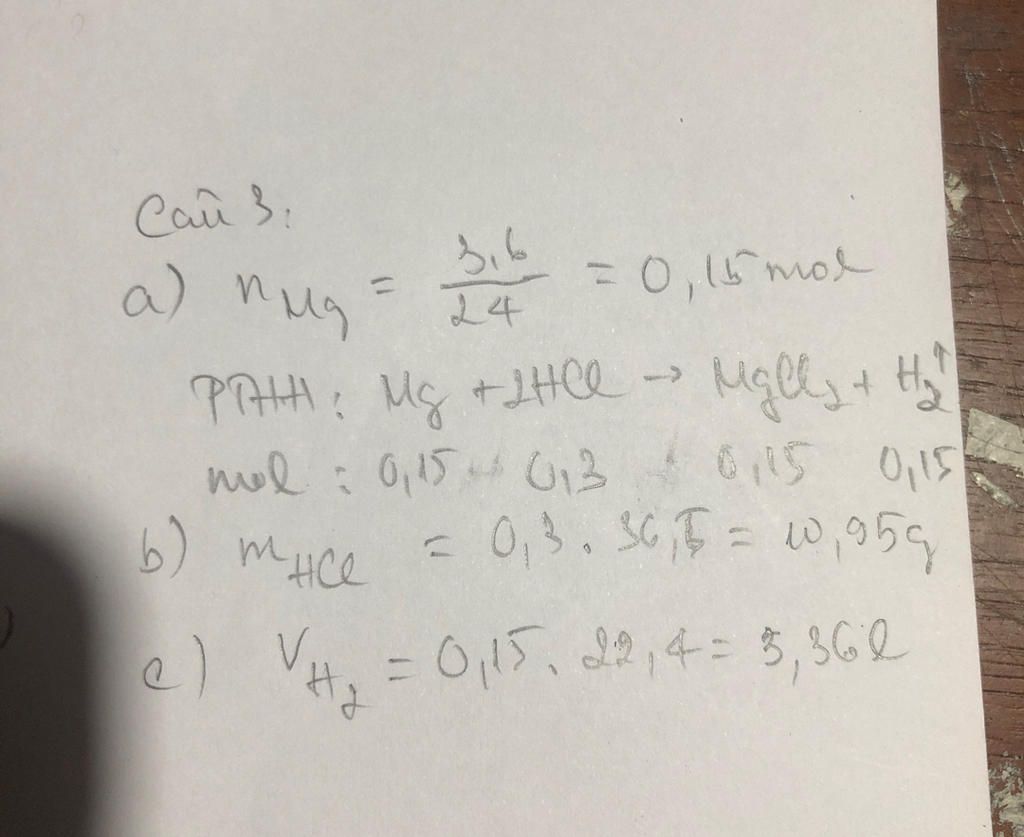 Câu 3:
a) n Mg = 3,6 / 24 = 0,15 mol
PTHH: Mg + 2HCl → MgCl₂ + H₂↑
mol : 0,15 0,3 0,15 0,15
b) m HCl = 0,3 . 36,5 = 10,95g
c) V H₂ = 0,15 . 22,4 = 3,36 l